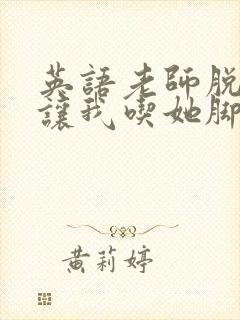 英語老師脱
讓我喫她脚
黃莉婷